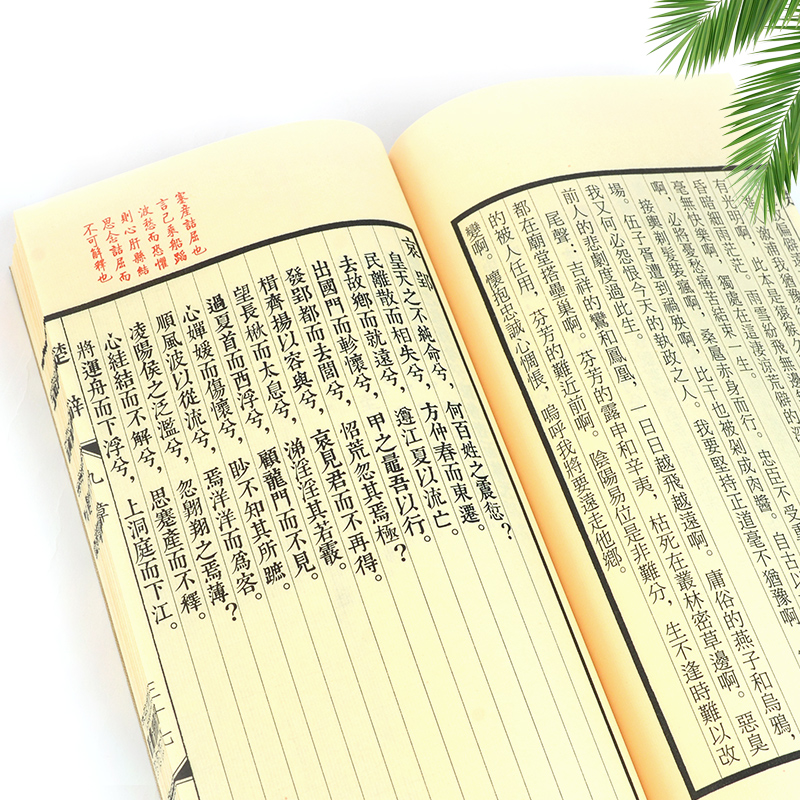 有光明啊，
昏暗細雨茫茫。
毫無快樂啊，獨處在這淒涼荒僻的深
啊，必將憂愁痛苦結束一生。
接輿剃髮裝瘋啊，桑扈赤身而行。忠臣不受
場。伍子胥遭到禍殃啊，比干也被剁成肉醬。自古以
我又何必怨恨今天的執政之人。我要堅持正道毫不猶豫啊
前人的悲劇度過此生。
尾聲：吉祥的鸞和鳳凰，一日日越飛越遠啊。庸俗的燕子和烏鴉，
都在廟堂搭壘巢啊。芬芳的露申和辛夷，枯死在叢林密草邊啊。惡臭
的被人任用，芬芳的難近前啊。陰陽易位是非難分，生不逢時難以改
變啊。懷抱忠誠心惆悵，嗚呼我將要遠走他鄉。
哀郢
皇天之不純命兮，何百姓之震愆？
民離散而相失兮，方仲春而東遷。
去故鄉而就遠兮，遵江夏以流亡。
出國門而軫懷兮，甲之鼂吾以行。
發郢都而去閭兮，怊荒忽其焉極？
楫齊揚以容與兮，哀見君而不再得。
望長楸而太息兮，涕淫淫其若霰。
過夏首而西浮兮，顧龍門而不見。
心嬋媛而傷懷兮，眇不知其所蹠。
順風波以從流兮，焉洋洋而為客。
凌陽侯之泛濫兮，忽翱翔之焉薄？
心絓結而不解兮，思蹇產而不釋。
將運舟而下浮兮，上洞庭而下江。
蹇產詰屈也
言己乘船蹈
波愁而恐懼
則心肝縣結
思念詰屈而
不可解釋也
楚辭
九章